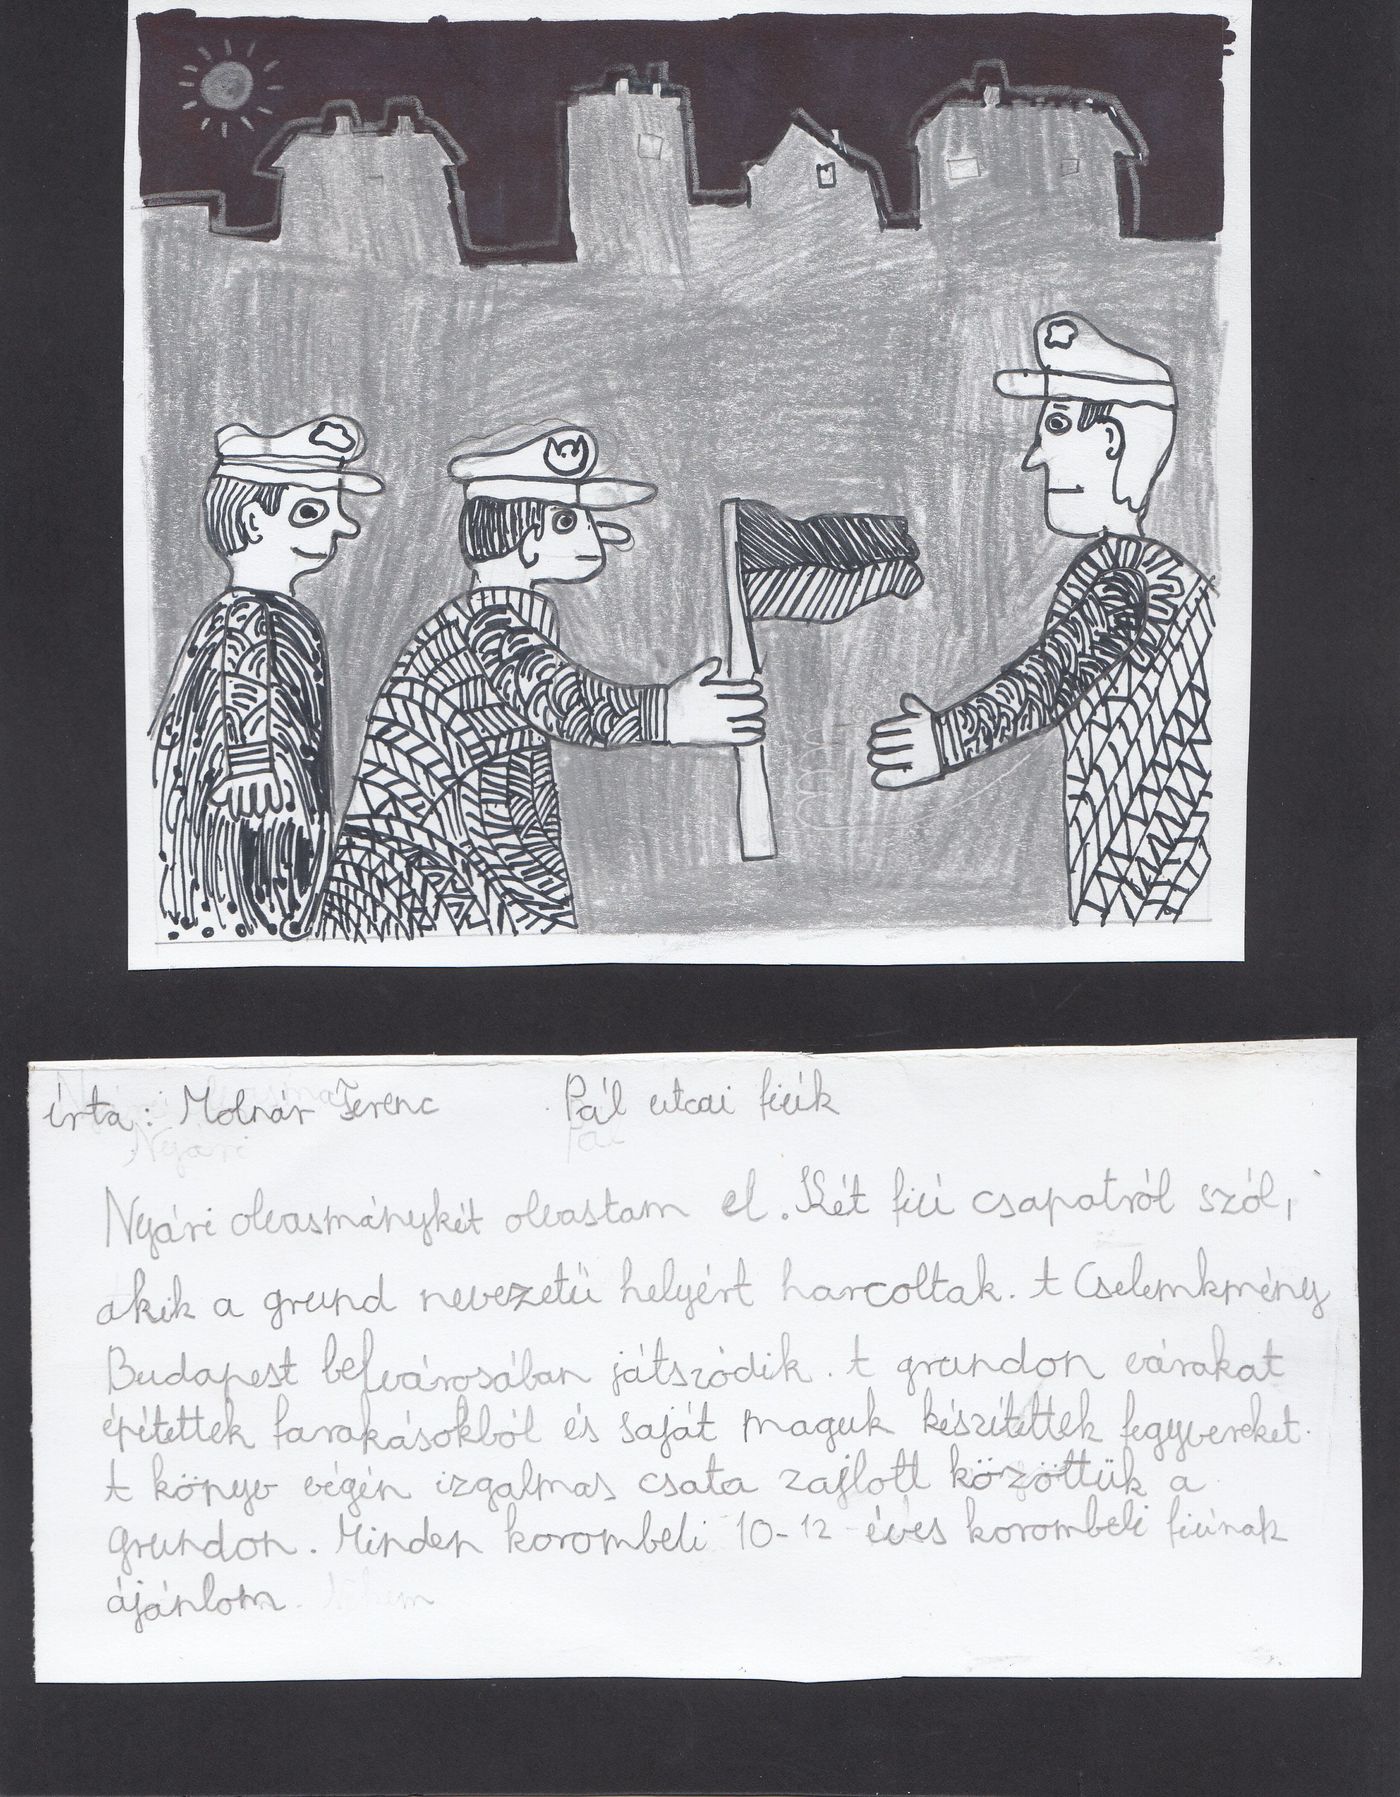 írta: Molnár Ferenc Pál utcai fiúk
Nyári
Pál
Nyári olvasmánykét olvastam el. Két fiú csapatról szól,
akik a grund nevezetű helyért harcoltak. A Cselemkmény
Budapest belvárosában játszódik. A grundon várakat
építettek farakásokból és saját maguk készítettek fegyvereket.
A könyv végén izgalmas csata zajlott közöttük a
grundon. Minden korombeli 10-12 éves korombeli fiúnak
ájánlom.